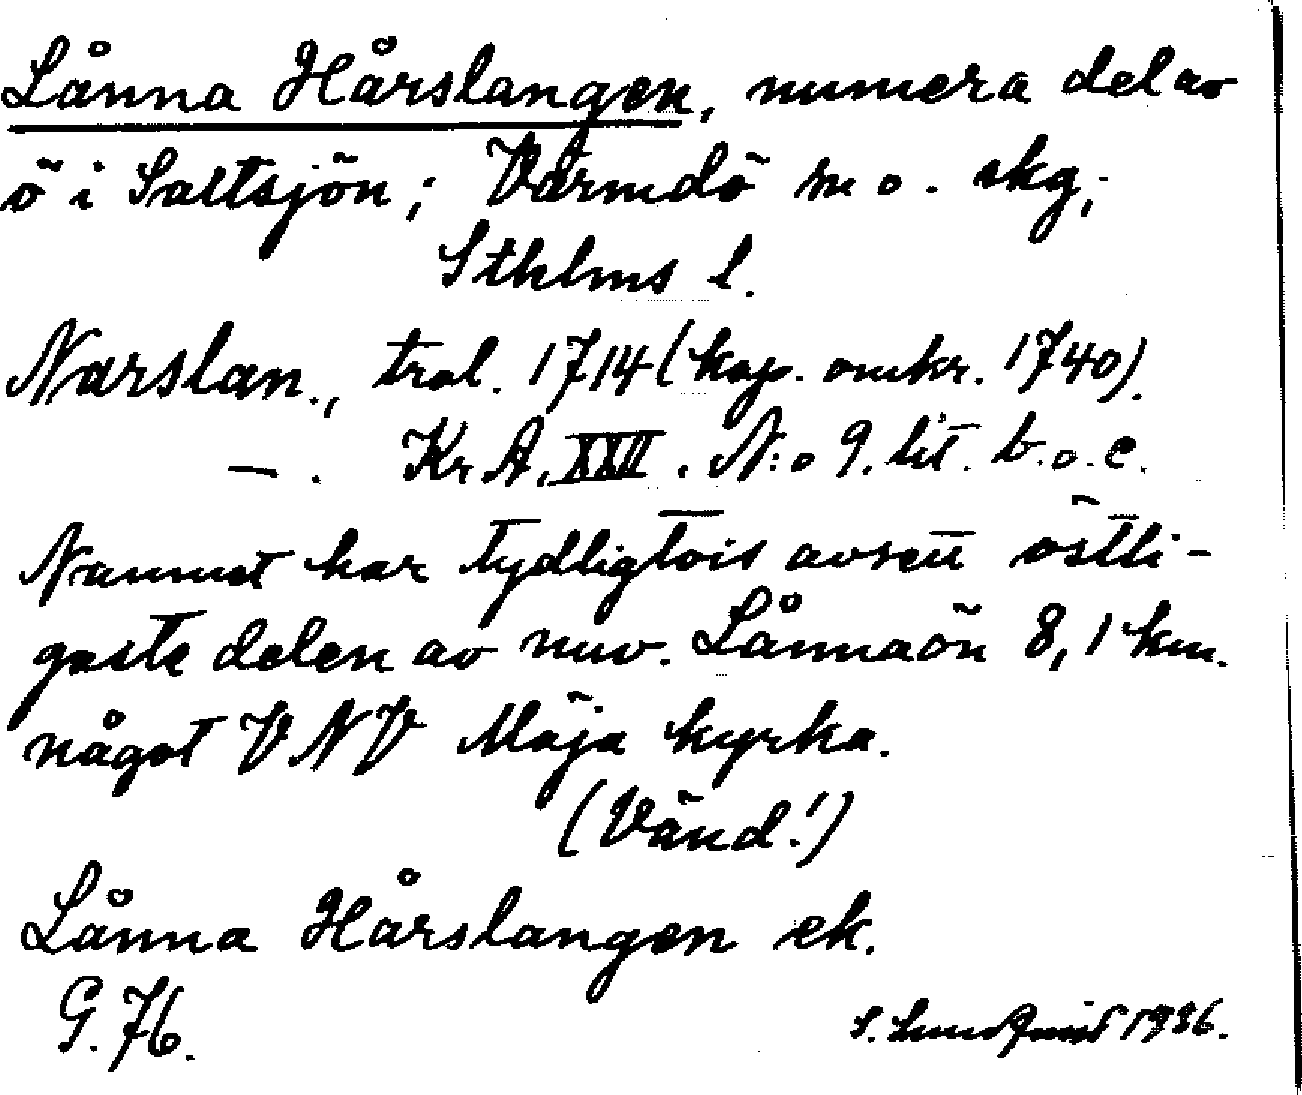 Lånna Hårslangen, numera del av
ö i Saltsjön; Värmdö m o. skg,
Sthlms l.
Narslan., trol. 1714 (kop. omkr. 1740).
—. Kr A. XXII. N:o 9. lit. b. o. c.
Namnet har tydligtvis avsett östli-
gaste delen av nuv. Lånnaön 8,1 km.
något VNV Möja kyrka.
(Vänd!)
Lånna Hårslangen ek.
G. 76.
S. Lundquist 1936.